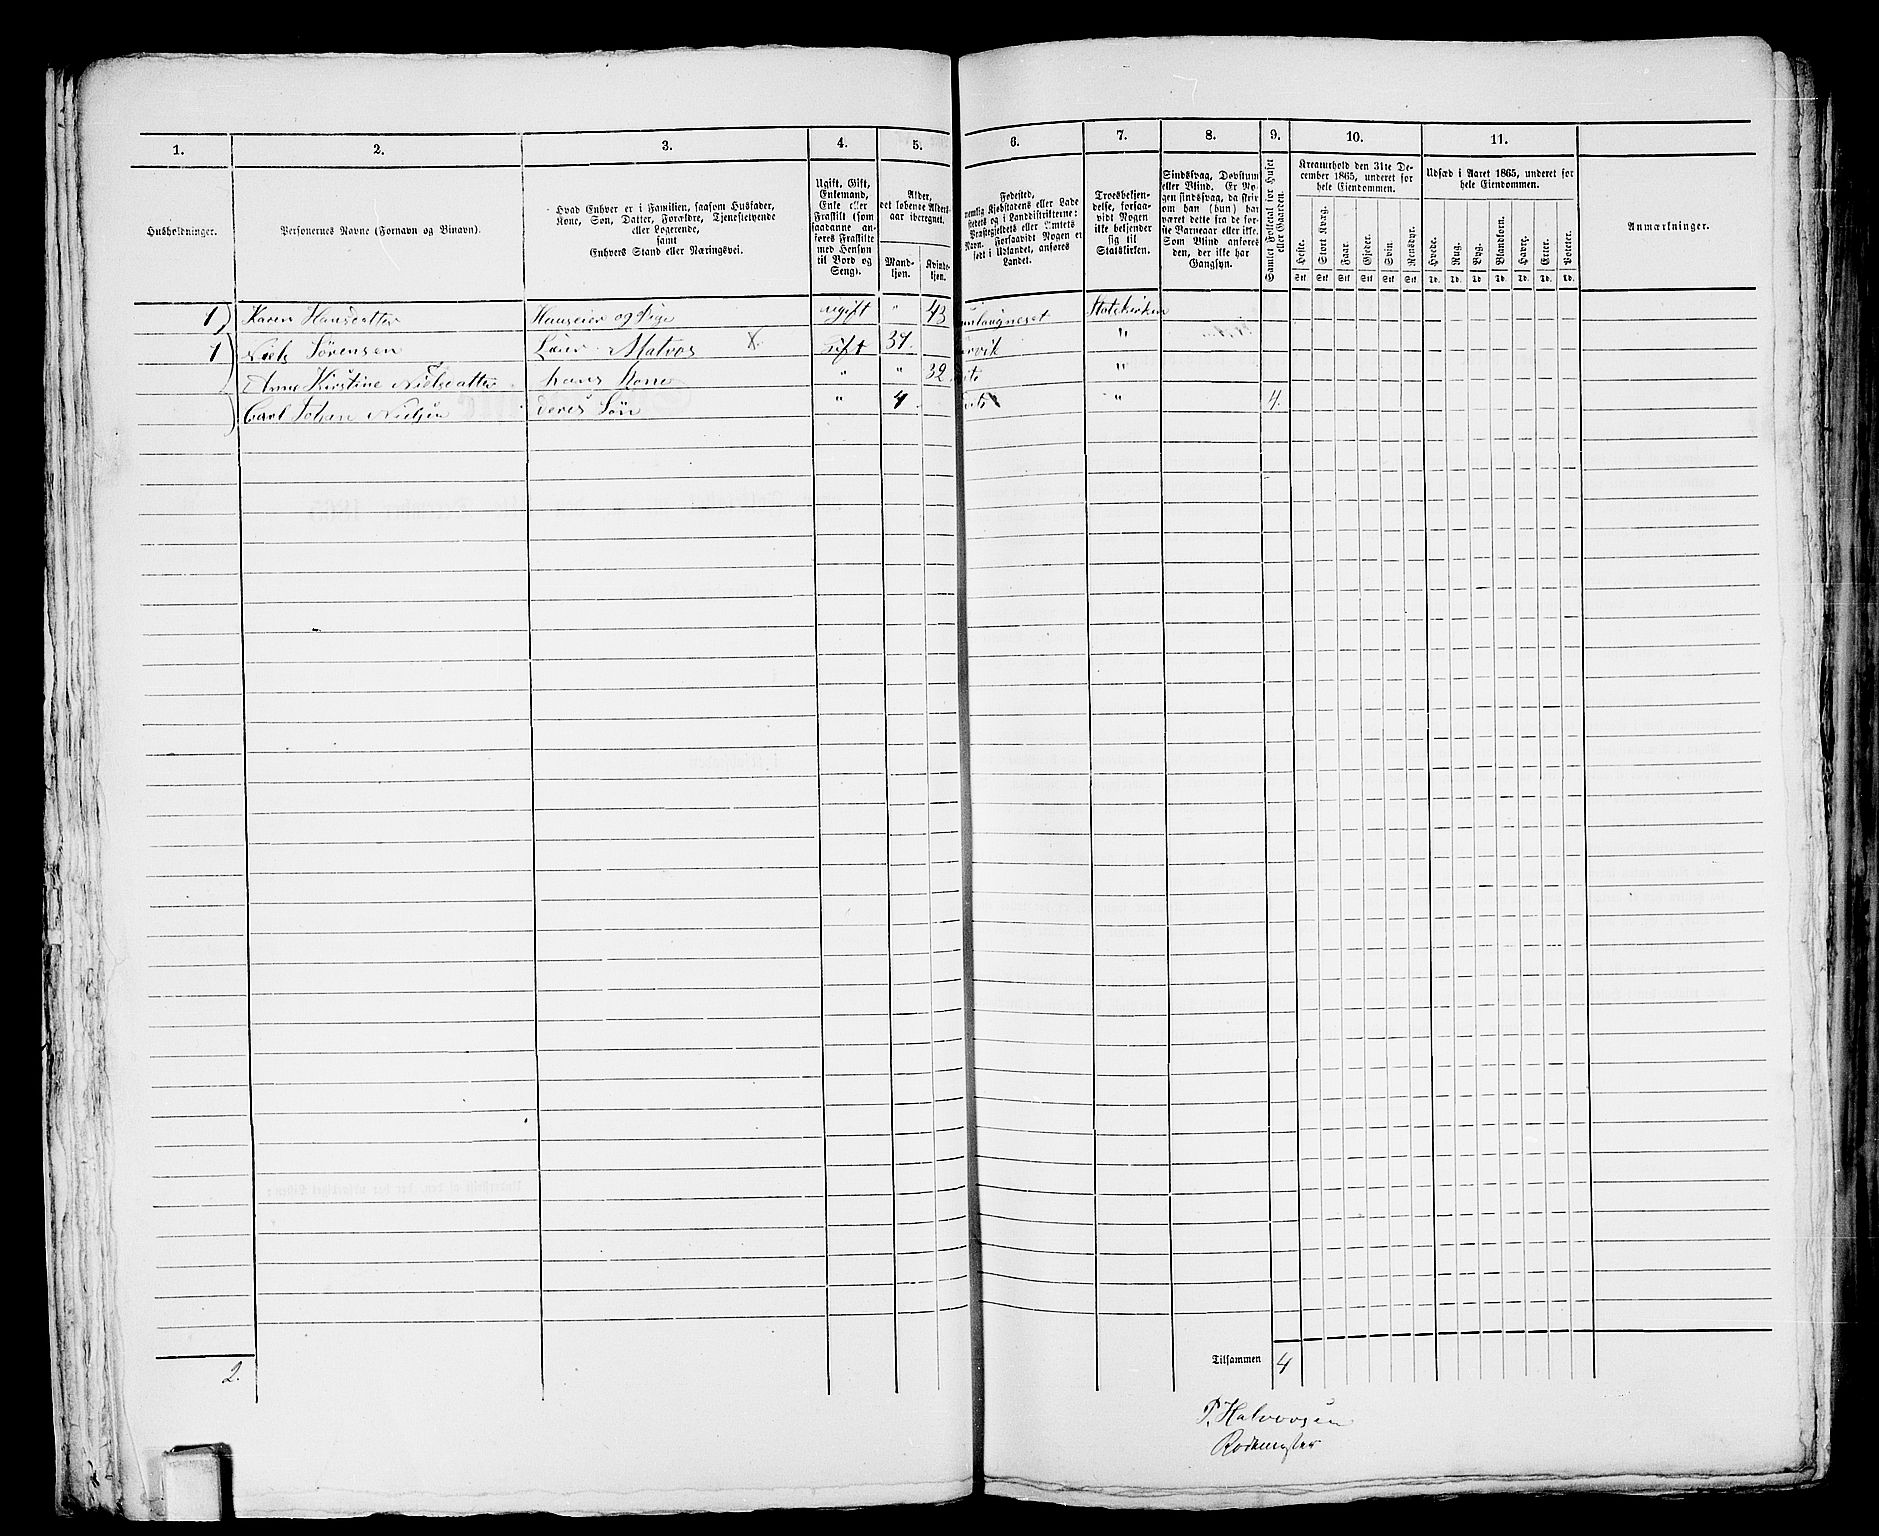 1. 2. 3. 4. 5. 6. 7. 8. 9. 10. 11.
Husholdninger.
Personernes Navne (Fornavn og Binavn).
Hvad Enhver er i Familien, saasom Husfader,
Kone, Søn, Datter, Forældre, Tjenestetyende
eller Logerende,
samt
Enhvers Stand eller Næringsvei.
Ugift, Gift,
Enkemand,
Enke eller
Fraskilt (som
saadanne an-
føres Fraskilte
med Hensyn
til Bord og
Seng).
Alder,
det løbende Alders-
aar iberegnet.
Mand-
kjøn.
Kvinde-
kjøn.
Fødested,
nemlig Kjøbstadens eller Lade
stedets og i Landdistrikterne:
Præstegjeldets eller Amtets
Navn. Forsaavidt Nogen er
født i Udlandet, anføres
Landet.
Troesbekjen-
delse, forsaa-
vidt Nogen
ikke bekjender
sig til
Statskirken.
Sindssvag, Døvstum
eller Blind. Er No-
gen sindssvag, da skriv
om han (hun) har
været dette fra de før-
ste Barneaar eller ikke.
Som Blind anføres
den, der ikke har
Gangsyn.
Samlet Folketal for Huset
eller Gaarden.
Kreaturhold den 31te De-
cember 1865, underet for
hele Eiendommen.
Heste. Stort Kvæg. Faar. Gjeder. Svin. Rensdyr.
Stk Stk Stk Stk Stk Stk
Udsæd i Aaret 1865, underet for
hele Eiendommen.
Hvede. Rug. Byg. Blandkorn. Havre. Erter. Poteter.
Td. Td. Td Td. Td. Td. Td.
Anmærkninger.
1 Karen Hansdatter Huuseier og Pige ugift " 43 Statskirken
1 Niels Sørensen X. Gift 37. "
Anne Kirstine Nielsdatter hans Kone " " 32 "
Carl Johan Nielsen deres Søn " 4 " 4.
2. Tilsammen 4
P. Halvorsen
Rodemester